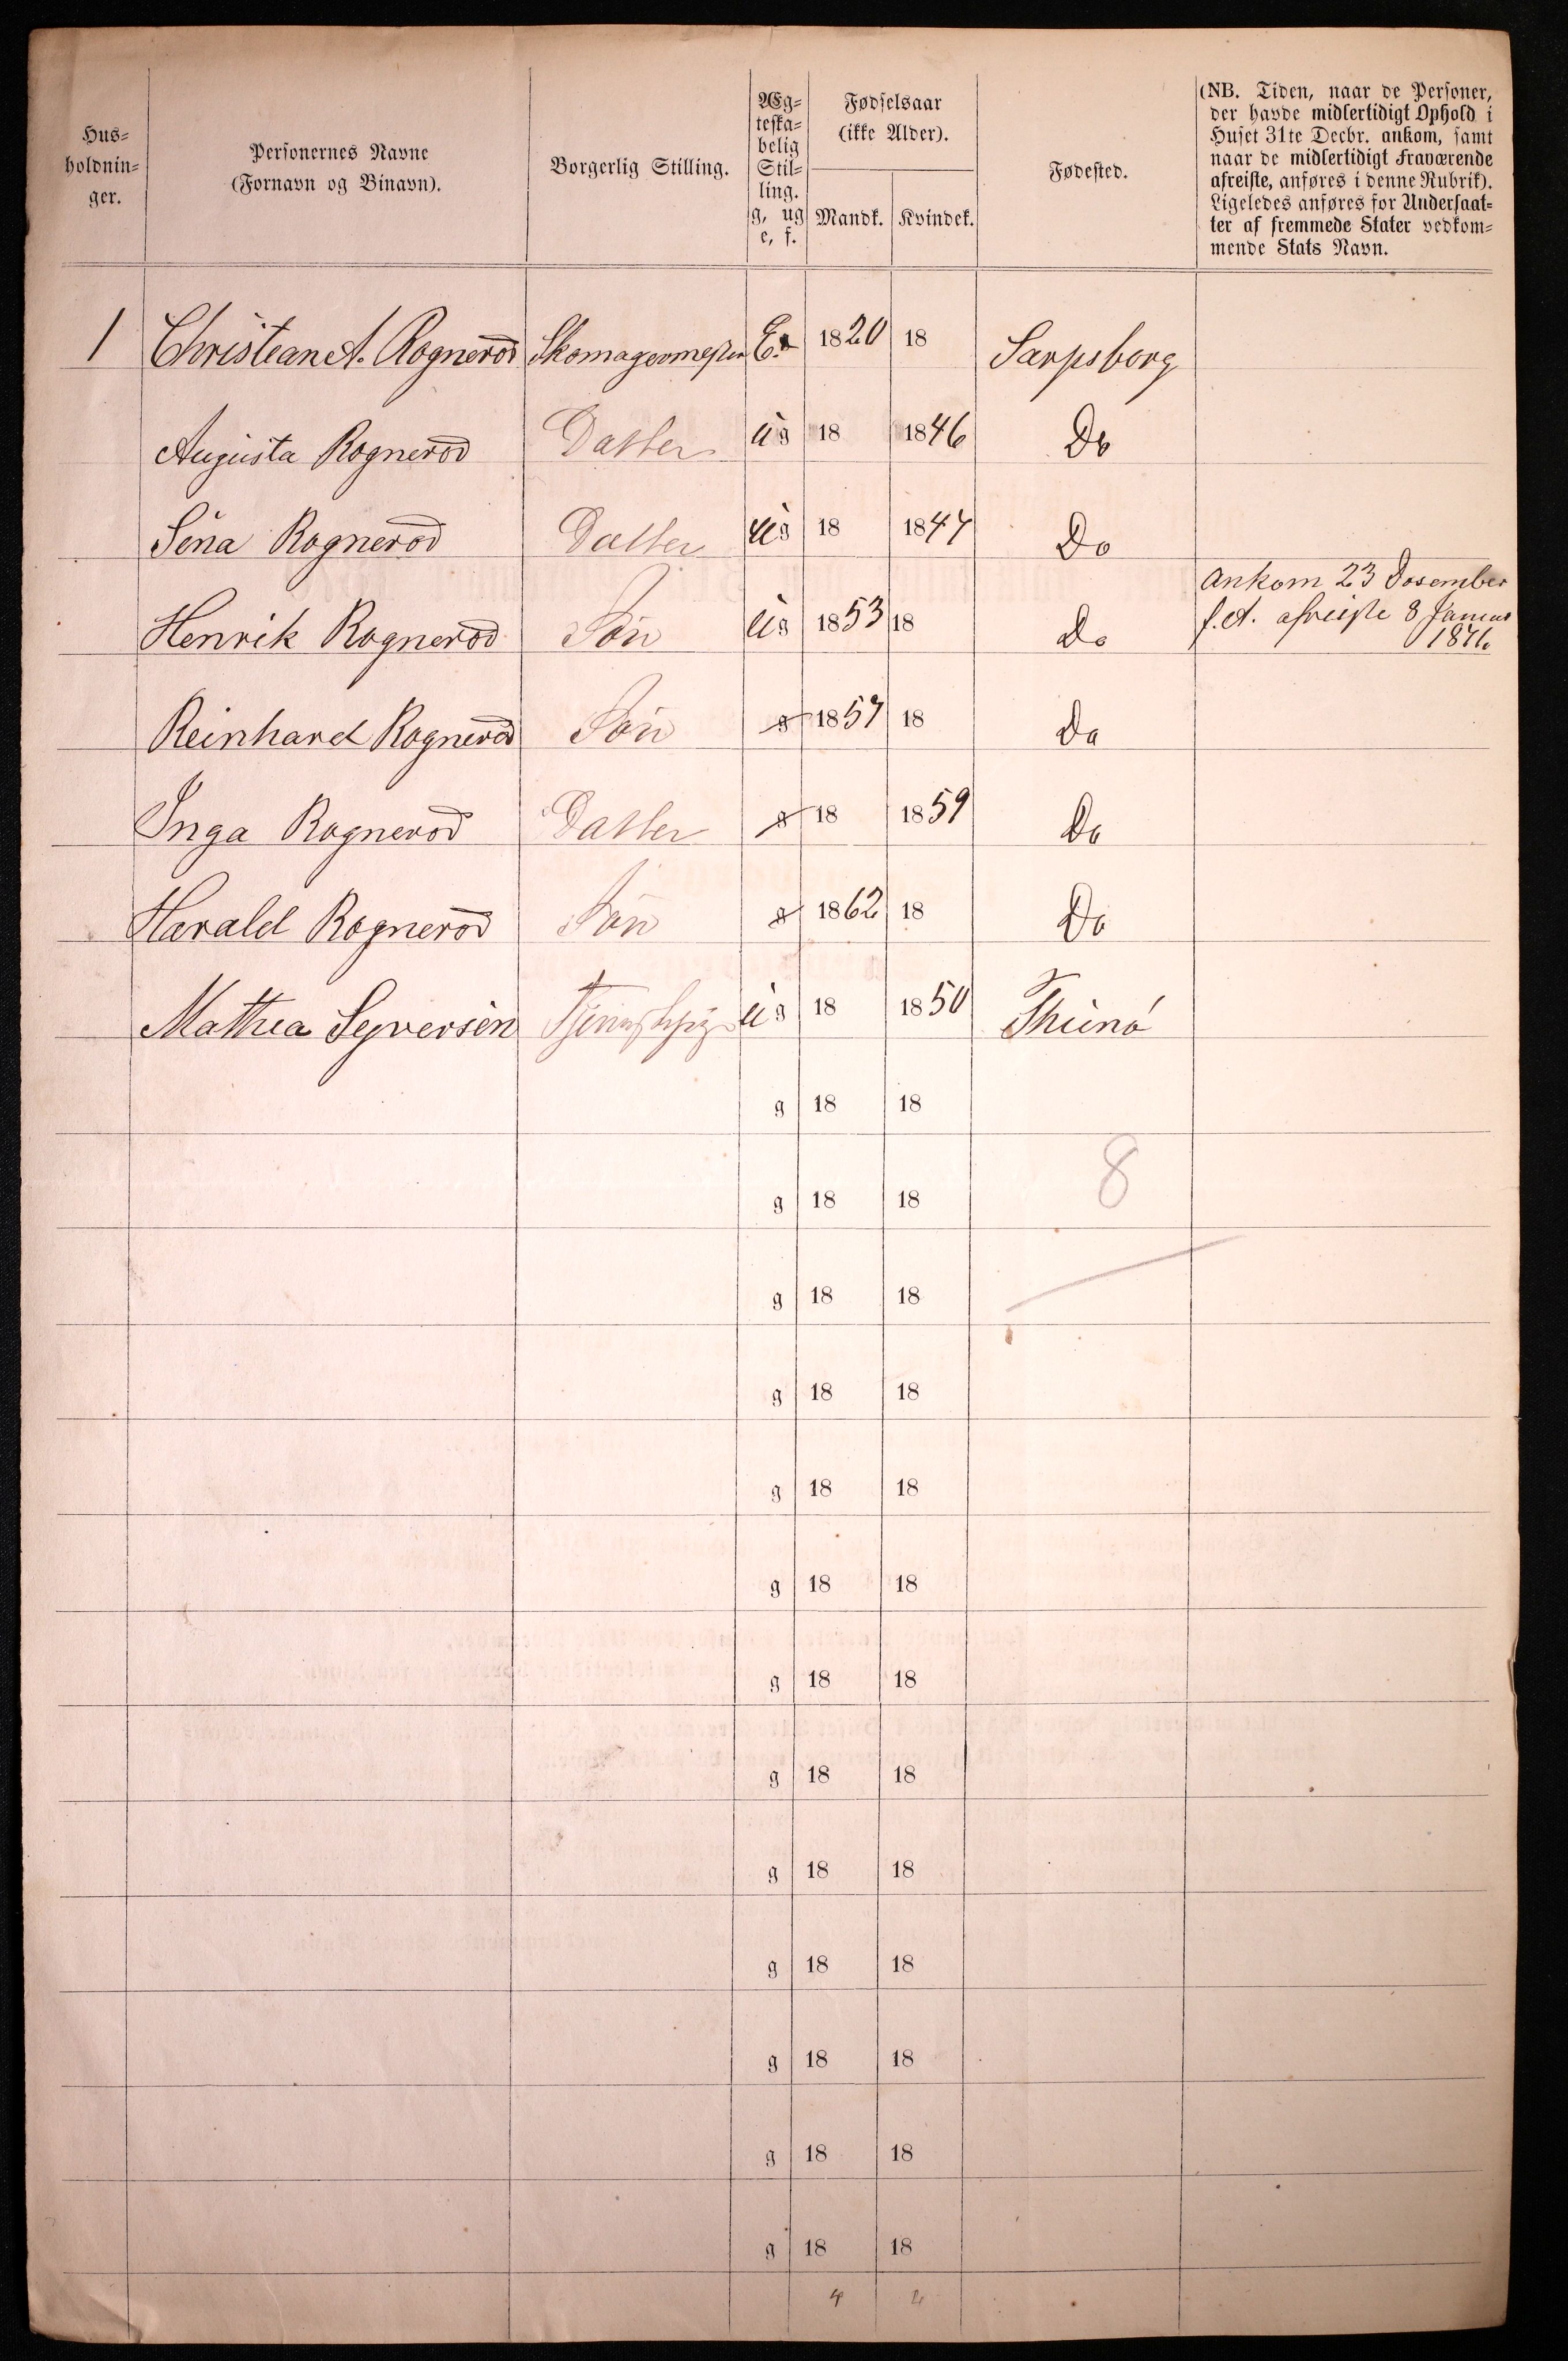 Hus-
holdnin-
ger.
Personernes Navne
(Fornavn og Binavn).
Borgerlig Stilling.
Æg-
teska-
belig
Stil-
ling.
g, ug
e, f.
Fødselsaar
(ikke Alder).
Mandk. Kvindek.
Fødested.
(NB. Tiden, naar de Personer,
der havde midlertidigt Ophold i
Huset 31te Decbr. ankom, samt
naar de midlertidigt Fraværende
afreiste, anføres i denne Rubrik).
Ligeledes anføres for Undersaat-
ter af fremmede Stater vedkom-
mende Stats Navn.
1 Christian A. Rogneröd Skomagermester E. 1820 18 Sarpsborg
Augusta Rogneröd Datter ug 18 1846 Do
Sina Rogneröd Datter ug 18 1847 Do
Ankom 23 Desember
Henrik Rogneröd Sön ug 1853 18 Do f. A. afreiste 8 Januar
1876
Reinhard Rogneröd Sön g 1857 18 Do
Inga Rogneröd Datter g 18 1859 Do
Harald Rogneröd Sön g 1862 18 Do
Mathea Syversen ug 18 1850 Thunö
g 18 18
g 18 18 8
g 18 18
g 18 18
g 18 18
g 18 18
g 18 18
g 18 18
g 18 18
g 18 18
g 18 18
g 18 18
g 18 18
4